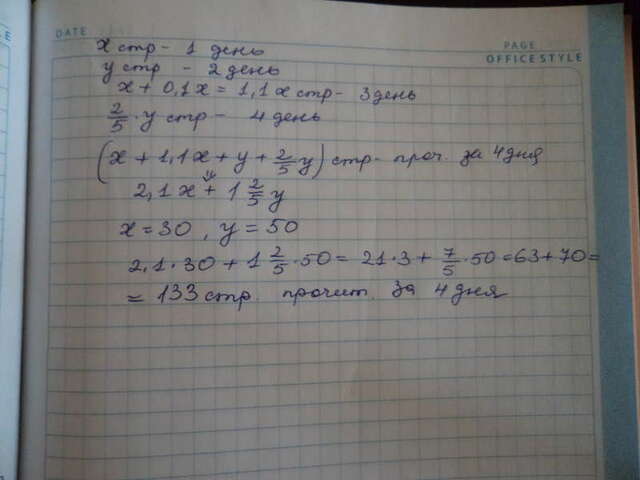 DATE
PAGE
OFFICE STYLE
x стр - 1 день
y стр - 2 день
x + 0,1x = 1,1x стр - 3 день
2/5 · y стр - 4 день
(x + 1,1x + y + 2/5 y) стр - проч. за 4 дня
2,1x + 1 2/5 y
x = 30, y = 50
2,1·30 + 1 2/5 · 50 = 21·3 + 7/5 · 50 = 63 + 70 =
= 133 стр. прочит. за 4 дня